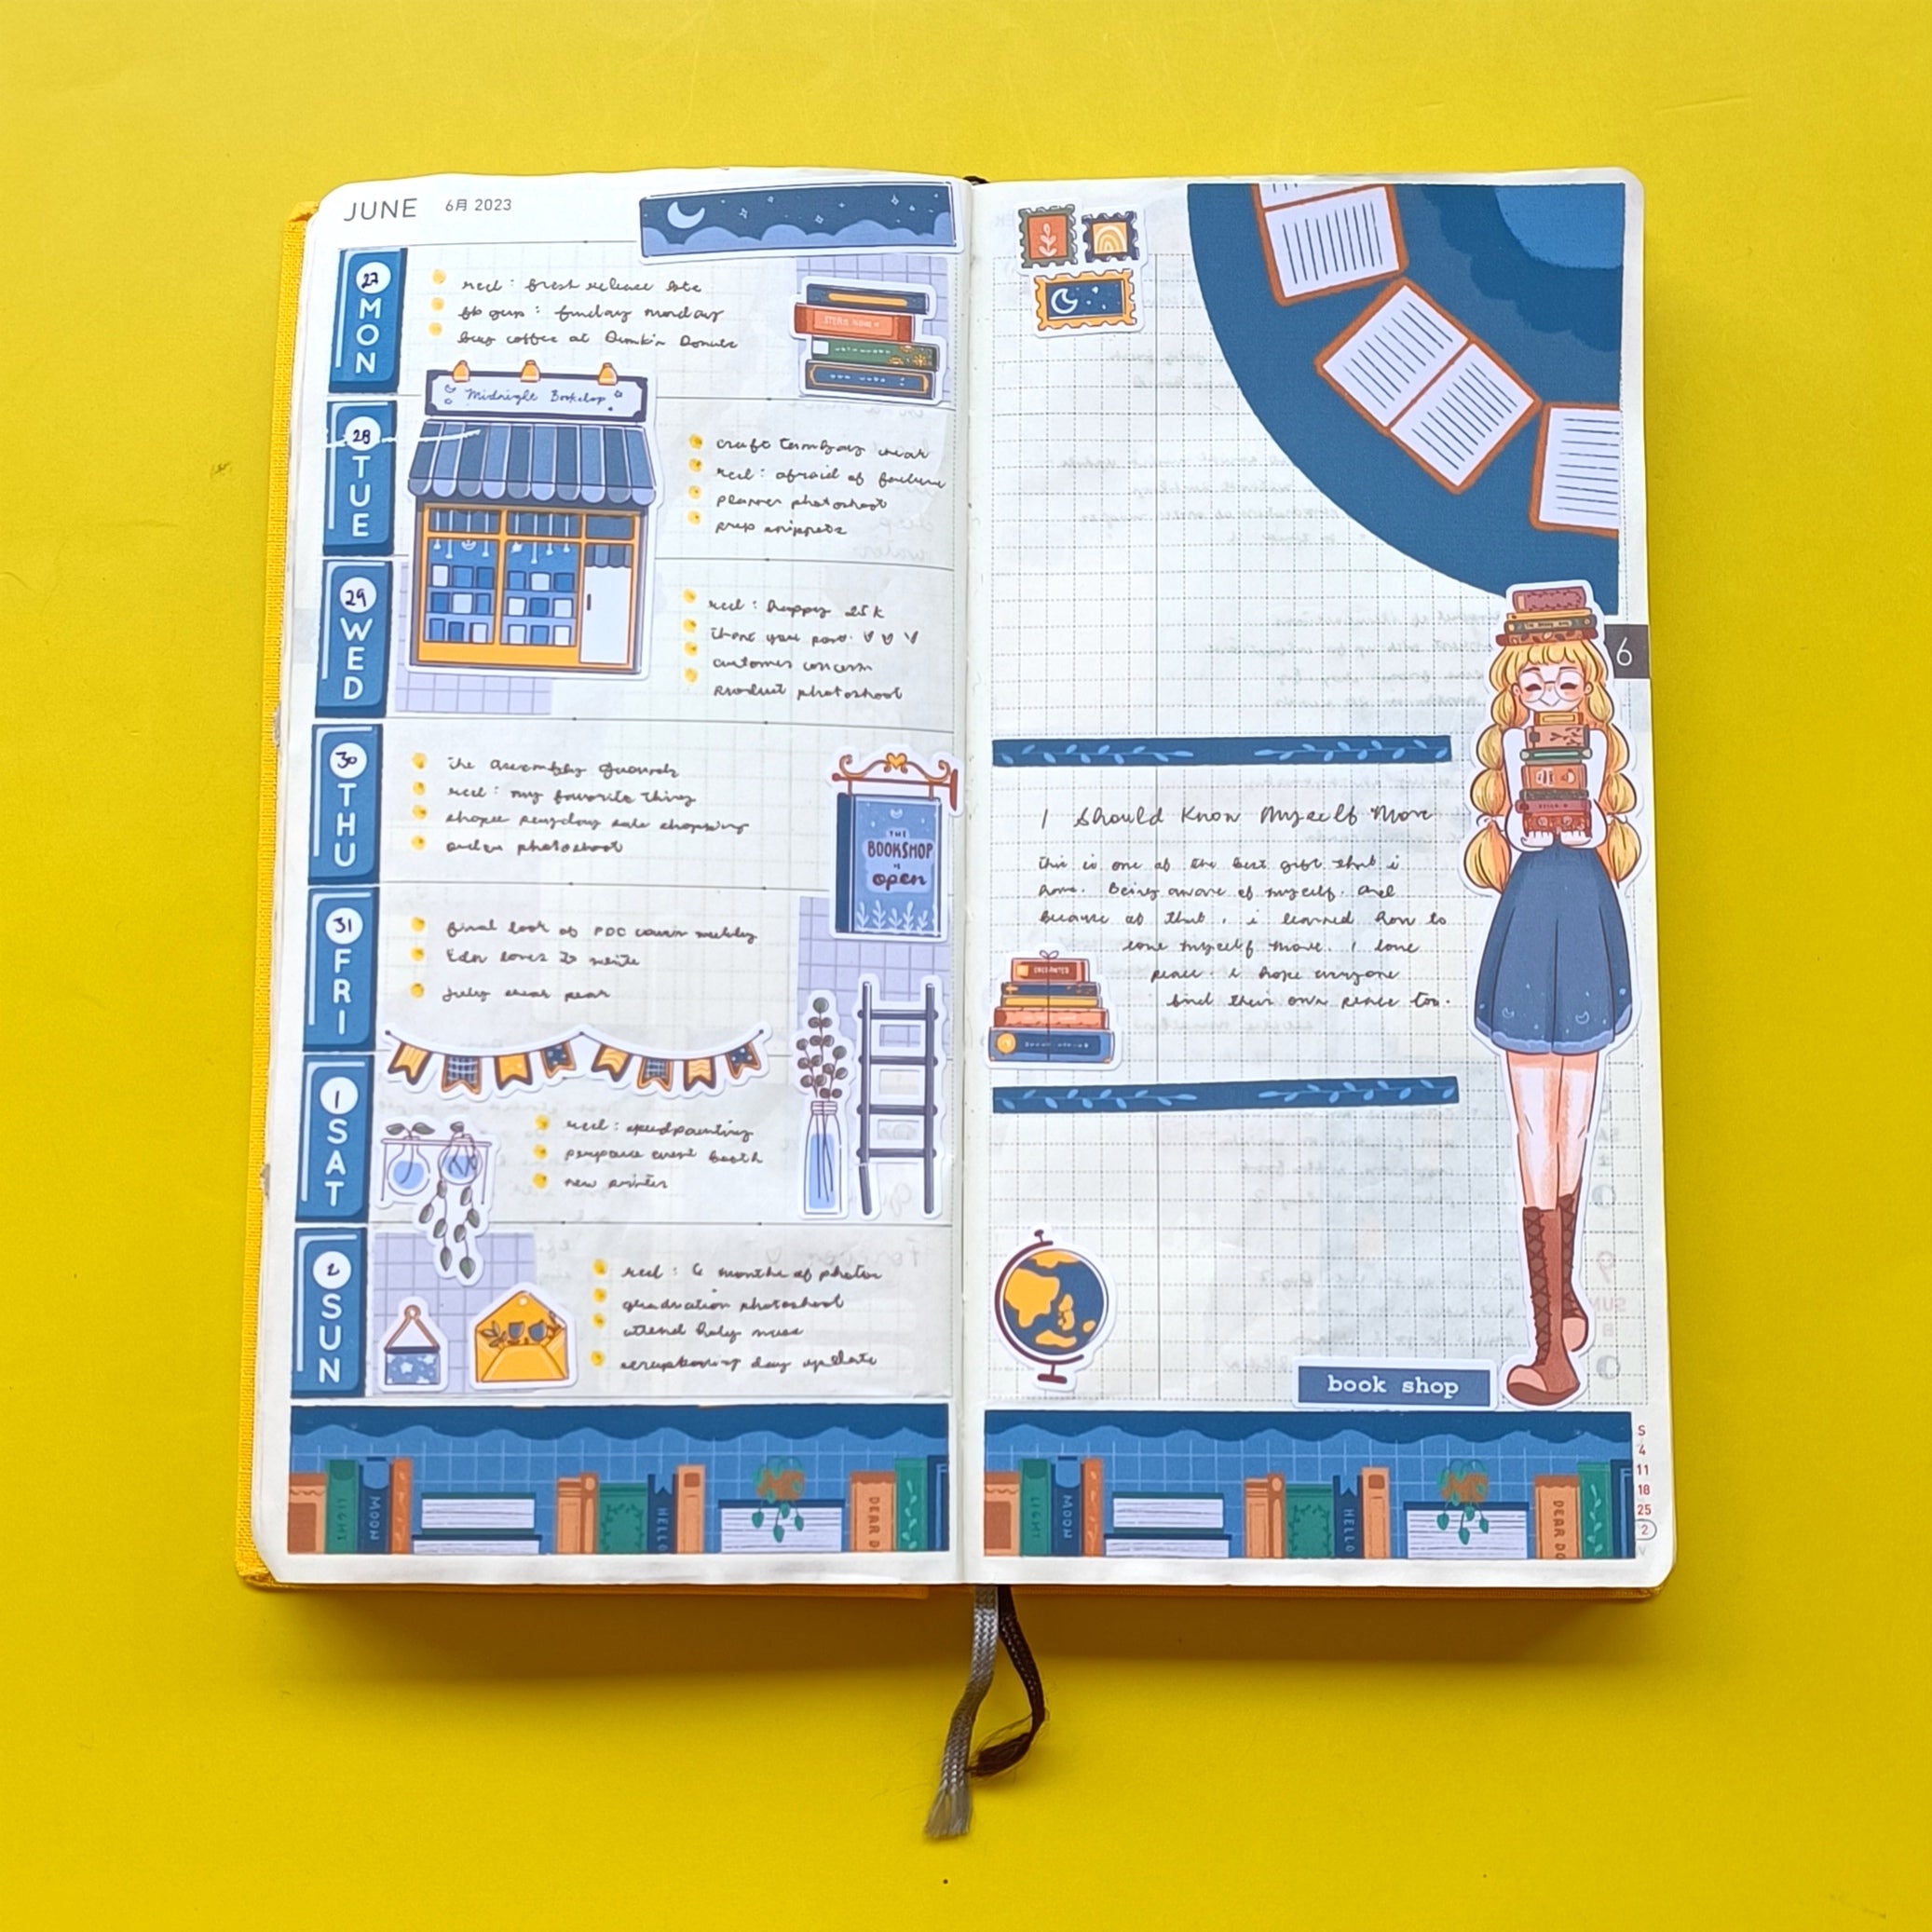 JUNE 6月 2023
27
MON
reel: fresh release late
fb group: funday monday
buy coffee at Dunkin Donuts
Midnight Bookshop
28
TUE
reel: afraid of failure
planner photoshoot
prep snippets
29
WED
reel: happy 25k
thank you post
customer concern
product photoshoot
30
THU
the assembly grounds
reel: my favorite thing
shopee payday sale shopping
photoshoot
THE
BOOKSHOP
IS
open
31
FRI
final look of
loves to write
july
1
SAT
reel: speedpainting
prepare event booth
new printer
2
SUN
reel: 6 months of photos
graduation photoshoot
attend holy mass
scrapbooking day update
LIGHT
MOON
HELLO
DEAR D
6
I Should Know Myself More
this is one of the best gift that i
have. Being aware of myself. And
because of that, i learned how to
love myself more. I love
peace. i hope everyone
find their own peace too.
ENCHANTED
book shop
LIGHT
MOON
HELLO
DEAR DO
S
4
11
18
25
2